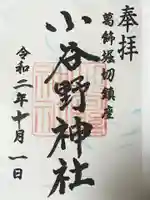 奉拝
葛飾堀切鎮座
小谷野神社
令和二年十月一日